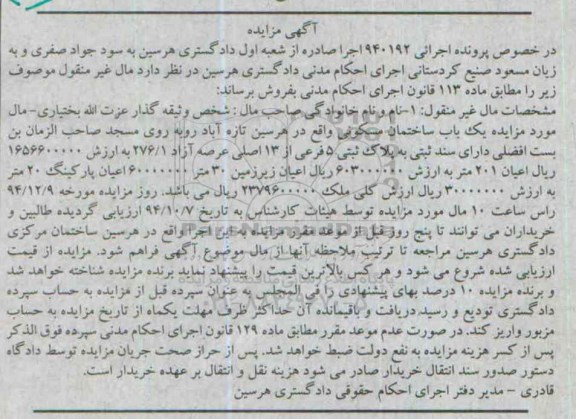 آگهی مزایده
در خصوص پرونده اجرائی ۹۴۰۱۹۲ اجرا صادره از شعبه اول دادگستری هرسین به سود جواد صفری و به
زیان مسعود صنیع کردستانی اجرای احکام مدنی دادگستری هرسین در نظر دارد مال غیر منقول موصوف
زیر را مطابق ماده ۱۱۳ قانون اجرای احکام مدنی بفروش برساند:
مشخصات مال غیر منقول: ۱-نام و نام خانوادگی صاحب مال : شخص وثیقه گذار عزت الله بختیاری-مال
مورد مزایده یک باب ساختمان مسکونی واقع در هرسین تازه آباد روبه روی مسجد صاحب الزمان بن
بست افضلی دارای سند ثبتی به پلاک ثبتی ۵ فرعی از ۱۳ اصلی عرصه آزاد ۲۷۶/۱ به ارزش ۱۶۵۶۶۰۰۰۰۰
ریال اعیان ۲۰۱ متر به ارزش ۶۰۳۰۰۰۰۰۰ ریال اعیان زیرزمین ۳۰ متر ۶۰۰۰۰۰۰۰ اعیان پارکینگ ۲۰ متر
به ارزش ۳۰۰۰۰۰۰۰ ریال ارزش کلی ملک ۲۳۷۹۶۰۰۰۰۰ ریال می باشد. روز مزایده مورخه ۹۴/۱۲/۹
راس ساعت ۱۰ مال مورد مزایده توسط هیئات کارشناس به تاریخ ۹۴/۱۰/۷ ارزیابی گردیده طالبین و
خریداران می توانند تا پنج روز قبل از موعد مقرر مزایده به این اجرا واقع در هرسین ساختمان مرکزی
دادگستری هرسین مراجعه تا ترتیب ملاحظه آنها از مال موضوع آگهی فراهم شود. مزایده از قیمت
ارزیابی شده شروع می شود و هر کس بالاترین قیمت را پیشنهاد نماید برنده مزایده شناخته خواهد شد
و برنده مزایده ۱۰ درصد بهای پیشنهادی را فی المجلس به عنوان سپرده قبل از مزایده به حساب سپرده
دادگستری تودیع و رسید دریافت و باقیمانده آن حداکثر ظرف مهلت یکماه از تاریخ مزایده به حساب
مزبور واریز کند. در صورت عدم موعد مقرر مطابق ماده ۱۲۹ قانون اجرای احکام مدنی سپرده فوق الذکر
پس از کسر هزینه مزایده به نفع دولت ضبط خواهد شد. پس از حراز صحت جریان مزایده توسط دادگاه
دستور صدور سند انتقال خریدار صادر می شود هزینه نقل و انتقال بر عهده خریدار است.
قادری - مدیر دفتر اجرای احکام حقوقی دادگستری هرسین